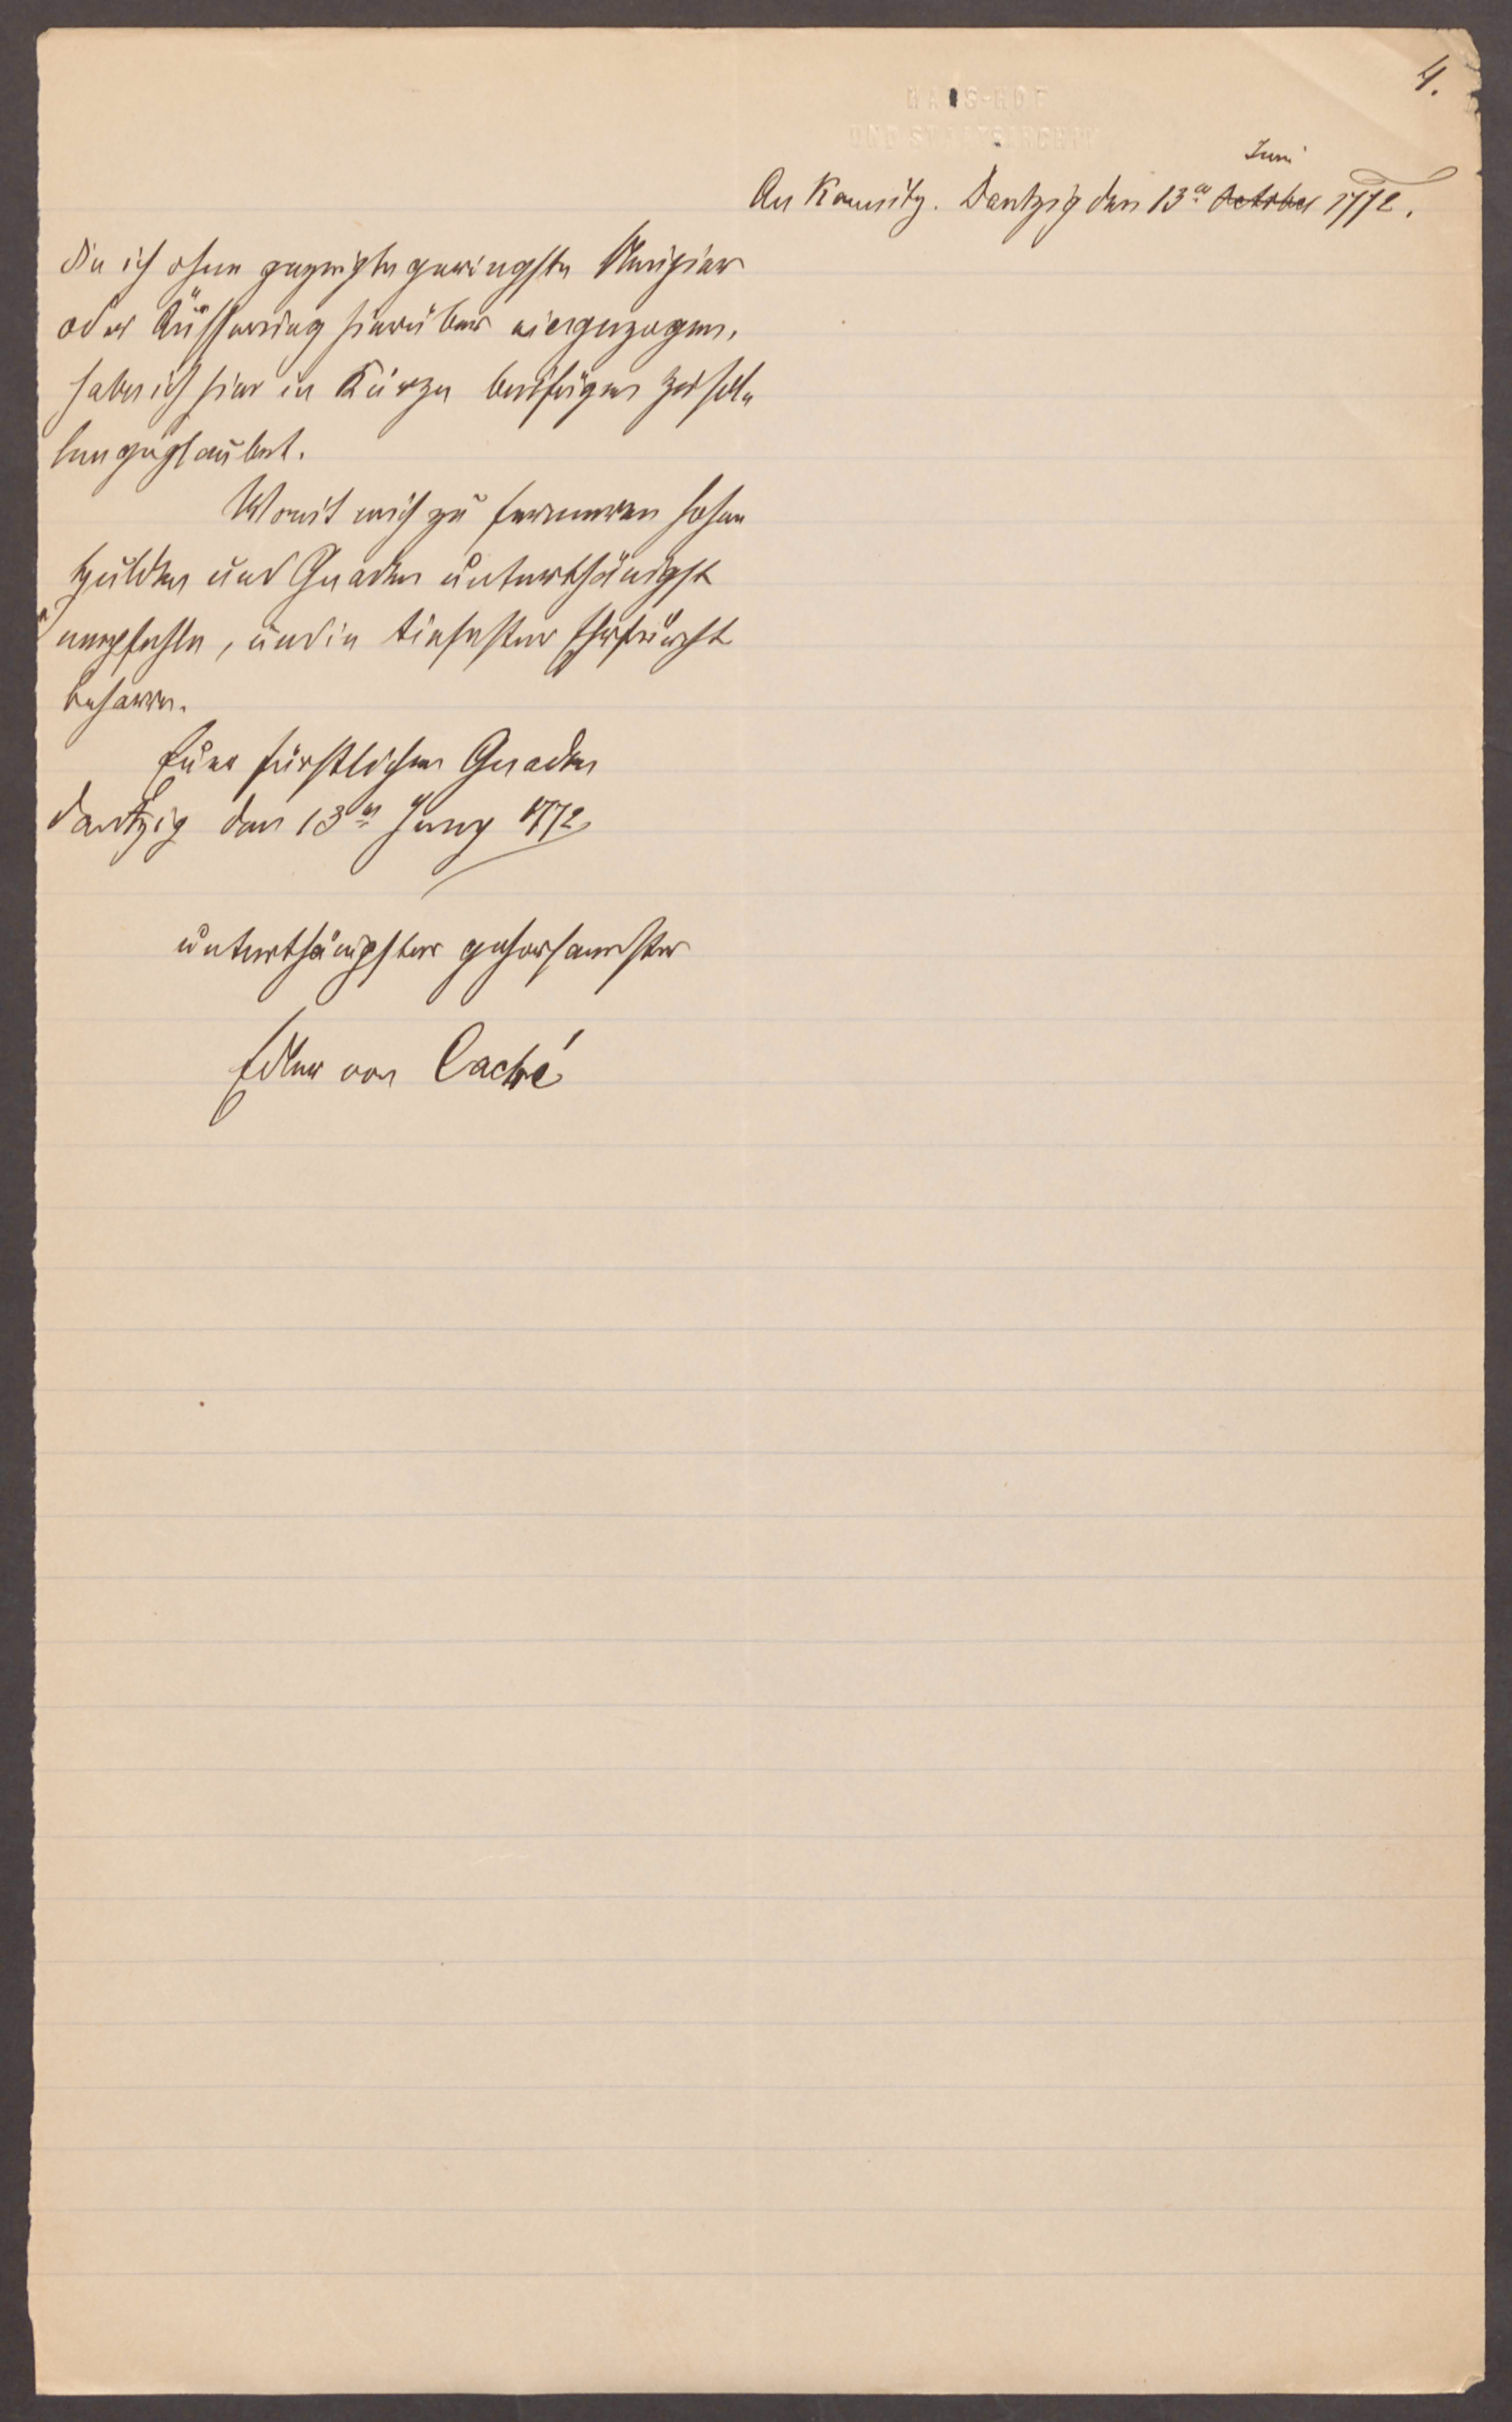 4.
HAUS-HOF
UND STAATSARCHIV
Juni
An Kaunitz. Dantzig den 13en October 1772.
die ich ohne gezeigte geringste Neugier
oder Äusserung hierüber eingezogen,
habe ich hier in Kürze beifügen zu solle
geglaubet.
Womit mich zu ferneren hohen
Hulden und Gnaden unterthänigst
empfehle, und in tiefester Ehrfurcht
beharre.
Euer fürstlichen Gnaden
Dantzig den 13en Juny 1772
unterthänigster gehorsamster
Edler von Caché